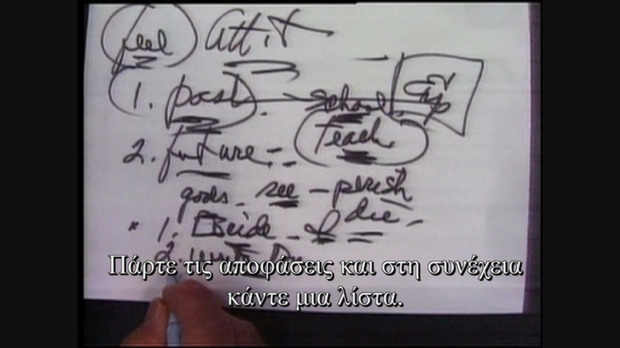 feel Attit
1. past. school.
2. future -. Teach
goods. see - perish
* 1. Decide - & die -
2. write D
Πάρτε τις αποφάσεις και στη συνέχεια
κάντε μια λίστα.